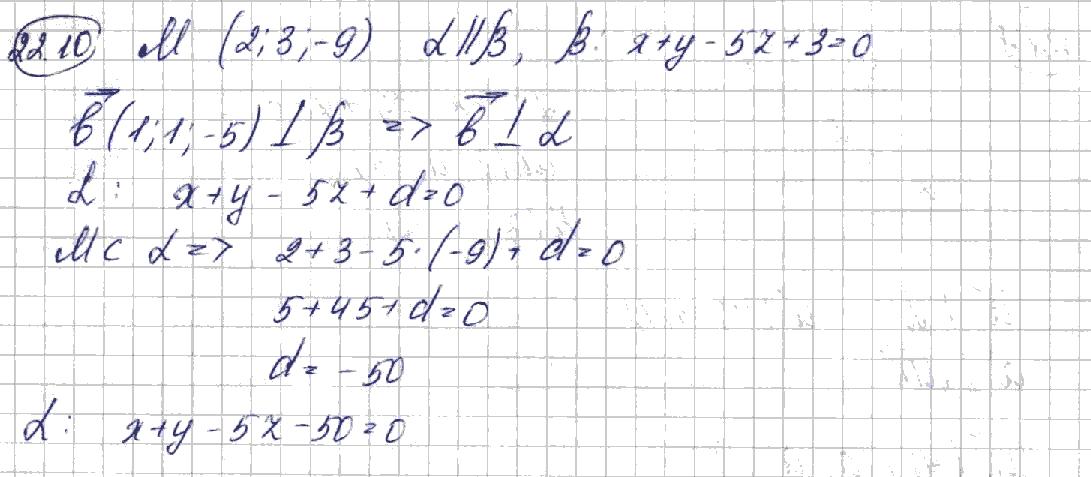 22.10 M (2; 3; -9) α || β, β: x+y-5z+3=0
b⃗ (1; 1; -5) ⊥ β => b⃗ ⊥ α
α: x+y-5z+d=0
M ⊂ α => 2+3-5·(-9)+d=0
5+45+d=0
d=-50
α: x+y-5z-50=0